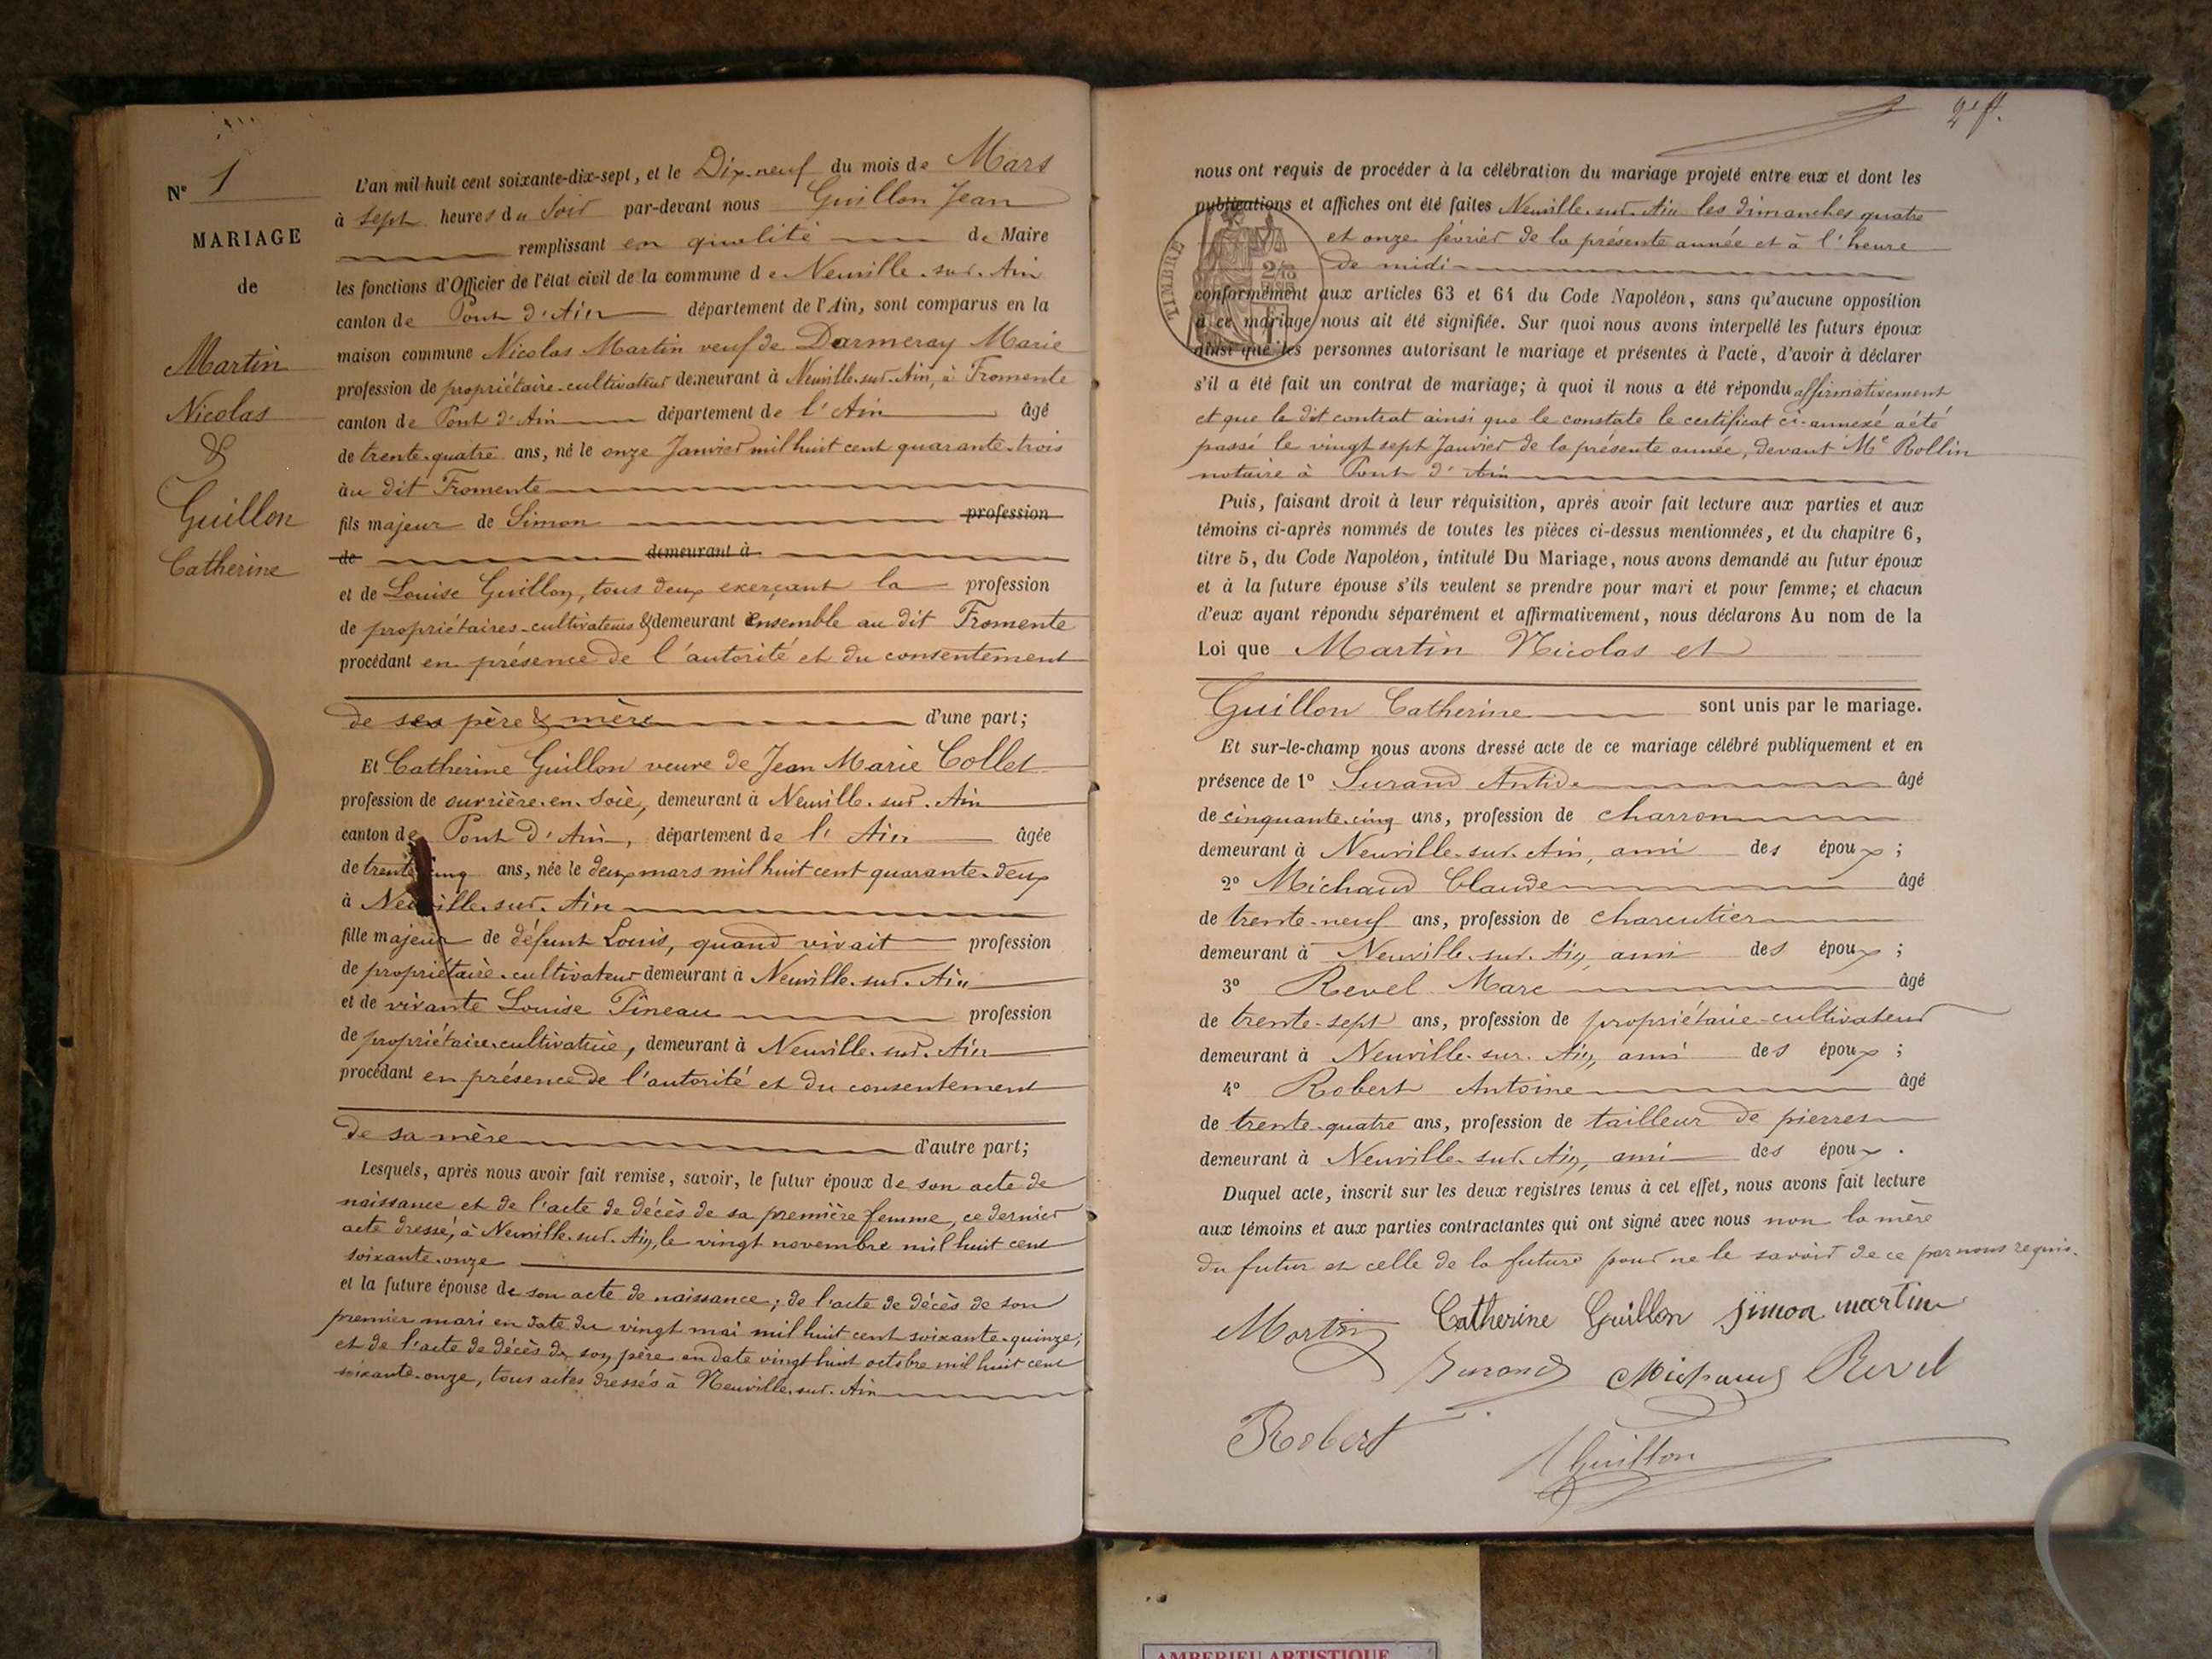 N° 1
MARIAGE
de
Martin
Nicolas
&
Guillon
Catherine
L'an mil huit cent soixante-dix-sept, et le Dix-neuf du mois de Mars
à sept heures du Soir par-devant nous Guillon Jean
remplissant en qualité de Maire
les fonctions d'Officier de l'état civil de la commune de Neuville-sur-Ain
canton de Pont d'Ain département de l'Ain, sont comparus en la
maison commune Nicolas Martin veuf de Darmeray Marie
profession de propriétaire-cultivateur demeurant à Neuville-sur-Ain, à Fromente
canton de Pont d'Ain département de l'Ain âgé
de trente-quatre ans, né le onze Janvier mil huit cent quarante-trois
au dit Fromente
fils majeur de Simon profession
de demeurant à
et de Louise Guillon, tous deux exerçant la profession
de propriétaires-cultivateurs & demeurant ensemble au dit Fromente
procédant en présence de l'autorité et du consentement
de ses père & mère d'une part;
Et Catherine Guillon veuve de Jean Marie Collet
profession de ouvrière-en-Soie, demeurant à Neuville-sur-Ain
canton de Pont d'Ain, département de l'Ain âgée
de trente cinq ans, née le deux mars mil huit cent quarante-deux
à Neuville-sur-Ain
fille majeur de défunt Louis, quand vivait profession
de propriétaire-cultivateur demeurant à Neuville-sur-Ain
et de vivante Louise Pineau profession
de propriétaire-cultivatrice, demeurant à Neuville-sur-Ain
procédant en présence de l'autorité et du consentement
de sa mère d'autre part;
Lesquels, après nous avoir fait remise, savoir, le futur époux de son acte de
naissance et de l'acte de décès de sa première femme, ce dernier
acte dressé, à Neuville-sur-Ain, le vingt novembre mil huit cent
soixante-onze
et la future épouse de son acte de naissance; de l'acte de décès de son
premier mari en date du vingt mai mil huit cent soixante-quinze;
et de l'acte de décès de son père en date vingt huit octobre mil huit cent
soixante-onze, tous actes dressés à Neuville-sur-Ain
2e f.
nous ont requis de procéder à la célébration du mariage projeté entre eux et dont les
publications et affiches ont été faites Neuville-sur-Ain les dimanches quatre
et onze février de la présente année et à l'heure
de midi
TIMBRE
conformément aux articles 63 et 64 du Code Napoléon, sans qu'aucune opposition
à ce mariage nous ait été signifiée. Sur quoi nous avons interpellé les futurs époux
ainsi que les personnes autorisant le mariage et présentes à l'acte, d'avoir à déclarer
s'il a été fait un contrat de mariage; à quoi il nous a été répondu affirmativement
et que le dit contrat ainsi que le constate le certificat ci-annexé a été
passé le vingt sept Janvier de la présente année, devant Me Rollin
notaire à Pont d'Ain
Puis, faisant droit à leur réquisition, après avoir fait lecture aux parties et aux
témoins ci-après nommés de toutes les pièces ci-dessus mentionnées, et du chapitre 6,
titre 5, du Code Napoléon, intitulé Du Mariage, nous avons demandé au futur époux
et à la future épouse s'ils veulent se prendre pour mari et pour femme; et chacun
d'eux ayant répondu séparément et affirmativement, nous déclarons Au nom de la
Loi que Martin Nicolas et
Guillon Catherine sont unis par le mariage.
Et sur-le-champ nous avons dressé acte de ce mariage célébré publiquement et en
présence de 1° Surand Antide âgé
de cinquante-cinq ans, profession de charron
demeurant à Neuville-sur-Ain, ami des époux;
2° Michaud Claude âgé
de trente-neuf ans, profession de charcutier
demeurant à Neuville-sur-Ain, ami des époux;
3° Revel Marc âgé
de trente-sept ans, profession de propriétaire-cultivateur
demeurant à Neuville-sur-Ain, ami des époux;
4° Robert Antoine âgé
de trente-quatre ans, profession de tailleur de pierres
demeurant à Neuville-sur-Ain, ami des époux.
Duquel acte, inscrit sur les deux registres tenus à cet effet, nous avons fait lecture
aux témoins et aux parties contractantes qui ont signé avec nous non la mère
du futur et celle de la future pour ne le savoir de ce par nous requis.
Martin Catherine Guillon Simon martin
Surand Michaud Revel
Robert Guillon
AMBERIEU ARTISTIQUE